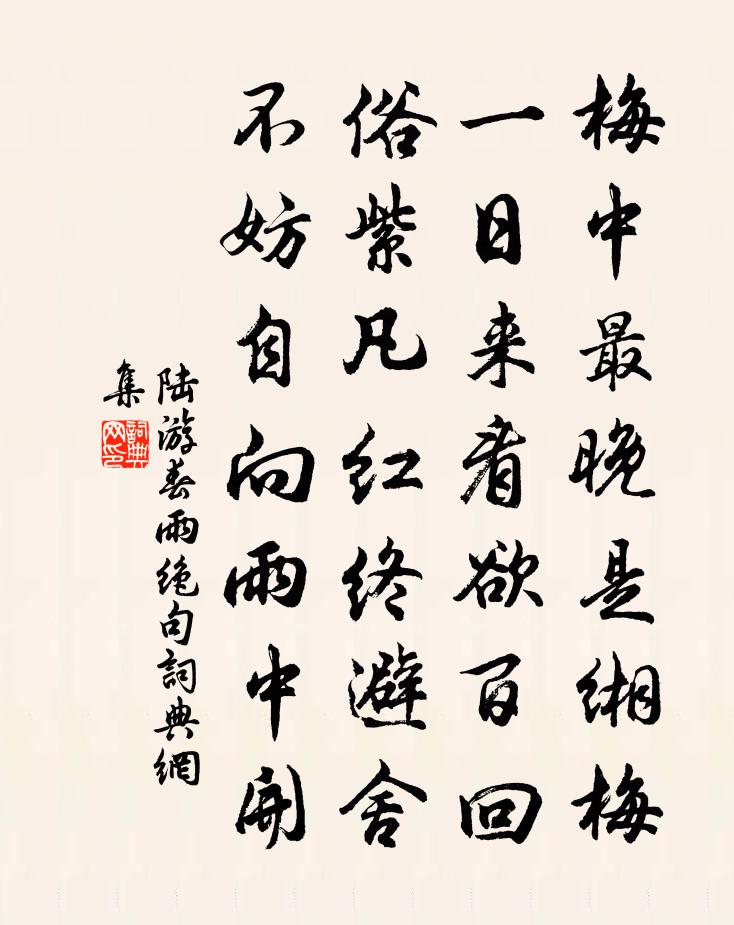 梅中最晚是缃梅
一日来看欲百回
俗紫凡红终避舍
不妨自向雨中開
陆游春雨绝句詞典網
集
詞典
网印